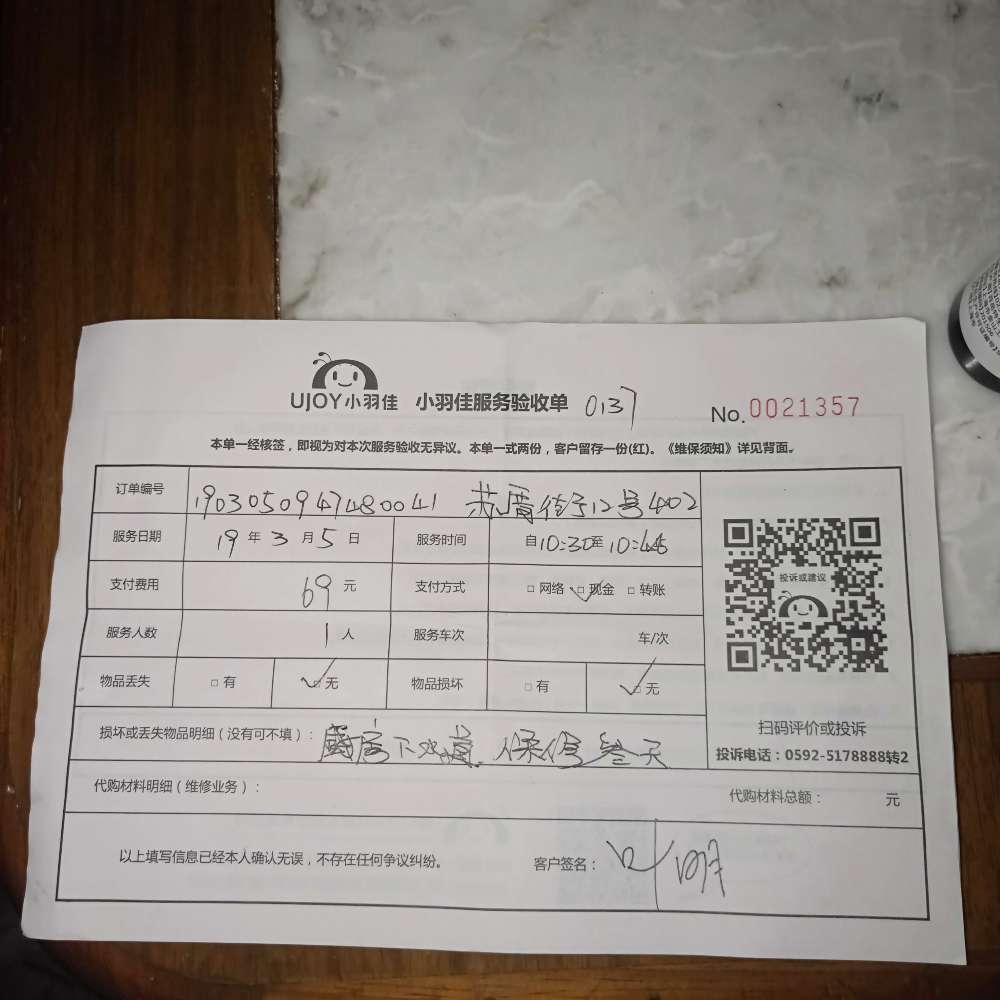 UJOY小羽佳 小羽佳服务验收单 0137 No.0021357
本单一经核签，即视为对本次服务验收无异议。本单一式两份，客户留存一份(红)。《维保须知》详见背面。
订单编号 1903050947480041 苏厝街312号402
服务日期 19 年 3 月 5 日 服务时间 自10:30至10:48
支付费用 69 元 支付方式 □ 网络 □ 现金 □ 转账
投诉或建议
服务人数 1 人 服务车次 车/次
物品丢失 □ 有 □ 无 物品损坏 □ 有 □ 无
扫码评价或投诉
损坏或丢失物品明细（没有可不填）： 下水道. 保修叁天
投诉电话：0592-5178888转2
代购材料明细（维修业务）： 代购材料总额： 元
以上填写信息已经本人确认无误，不存在任何争议纠纷。 客户签名： 叶明